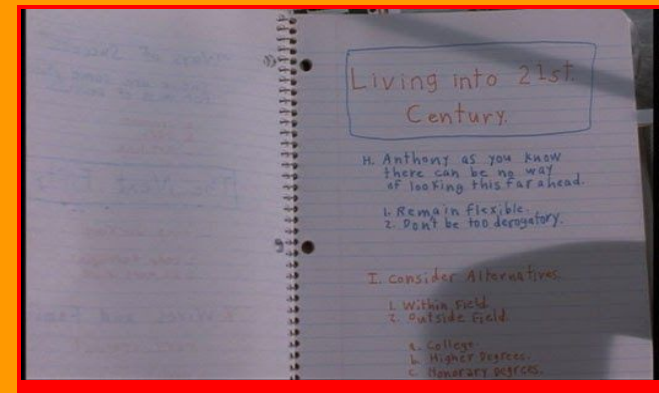 Living into 21st.
Century.
H. Anthony as you know
there can be no way
of looking this far ahead.
1. Remain flexible.
2. Don't be too derogatory.
I. Consider Alternatives.
1. Within Field.
2. Outside Field.
a. College.
b. Higher Degrees.
c. Honorary Degrees.